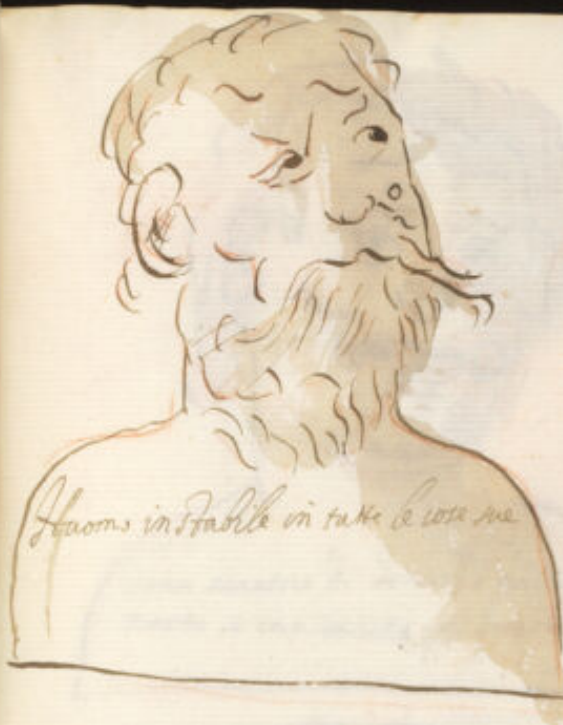 Huomo instabile in tutte le cose sue